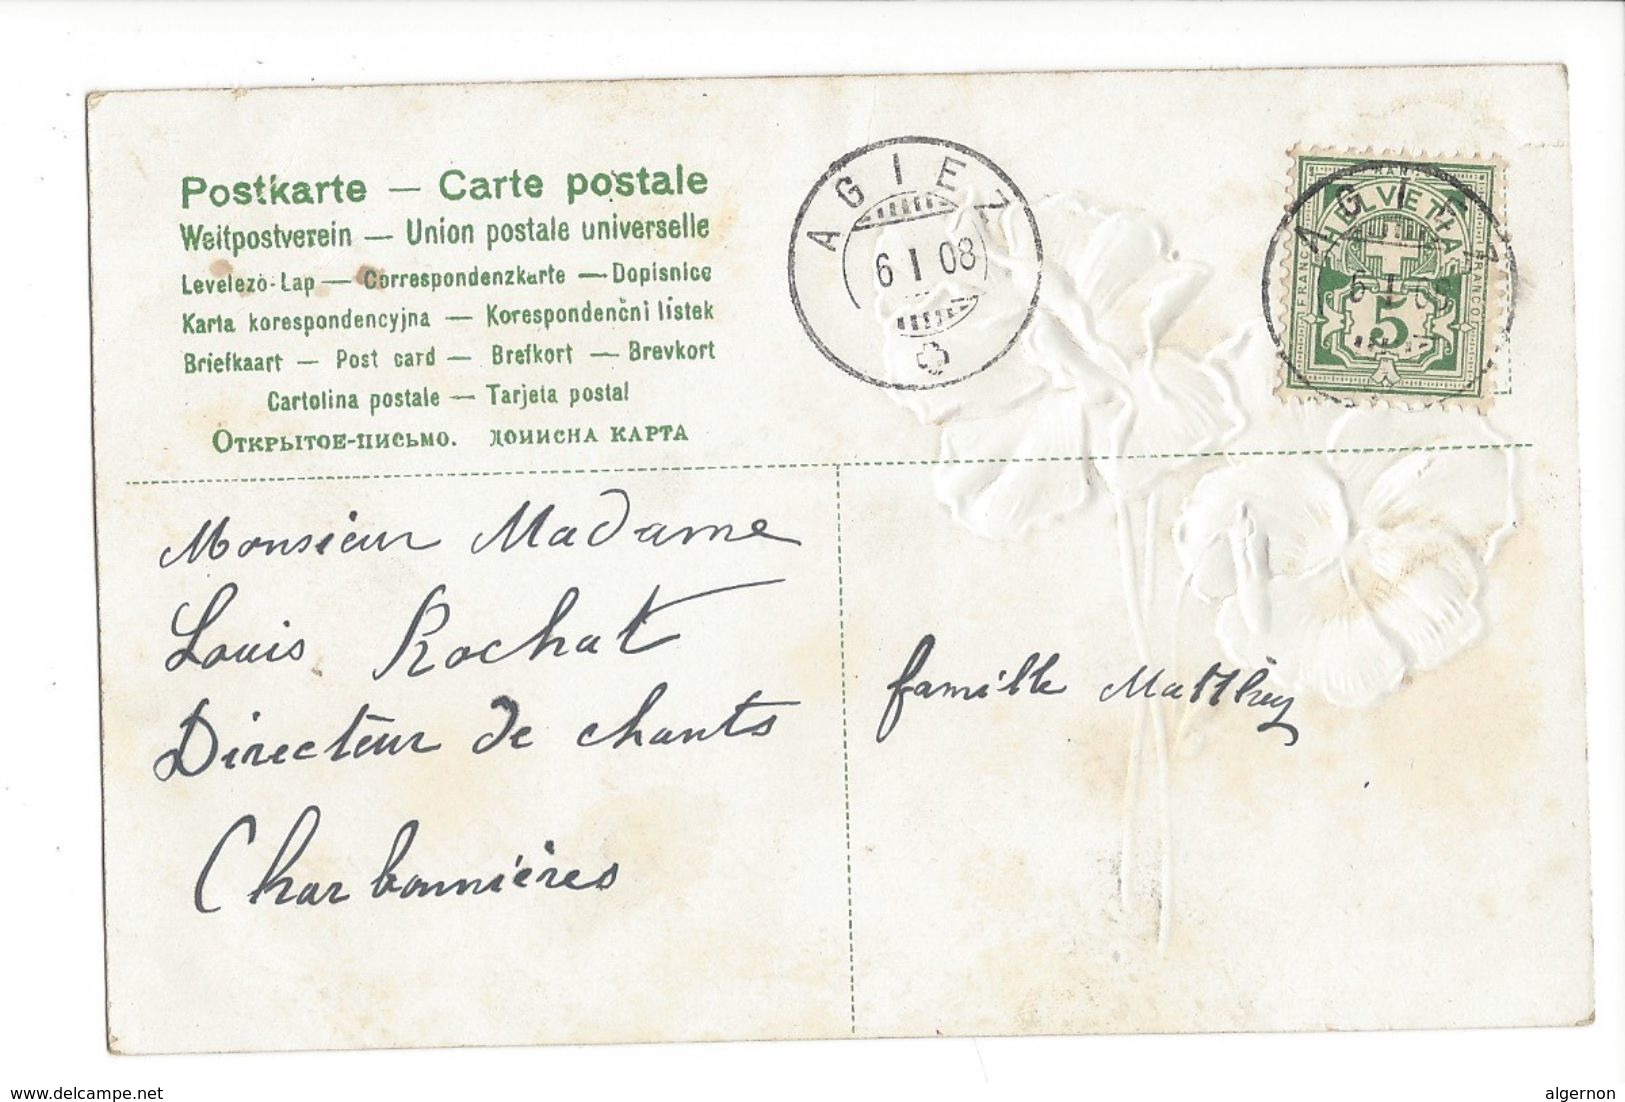 Postkarte — Carte postale
Weltpostverein — Union postale universelle
Levelezö-Lap — Correspondenzkarte — Dopisnice
Karta korespondencyjna — Korespondenčni listek
Briefkaart — Post card — Brefkort — Brevkort
Cartolina postale — Tarjeta postal
Открытое-письмо. Дописна карта
AGIEZ
6 I 08
FRANCO
HELVETIA
FRANCO
FRANCO
5
AGIEZ
6 I 08
Monsieur Madame
Louis Rochat
Directeur de chants
Charbonnières
famille Matthey
www.delcampe.net
algernon